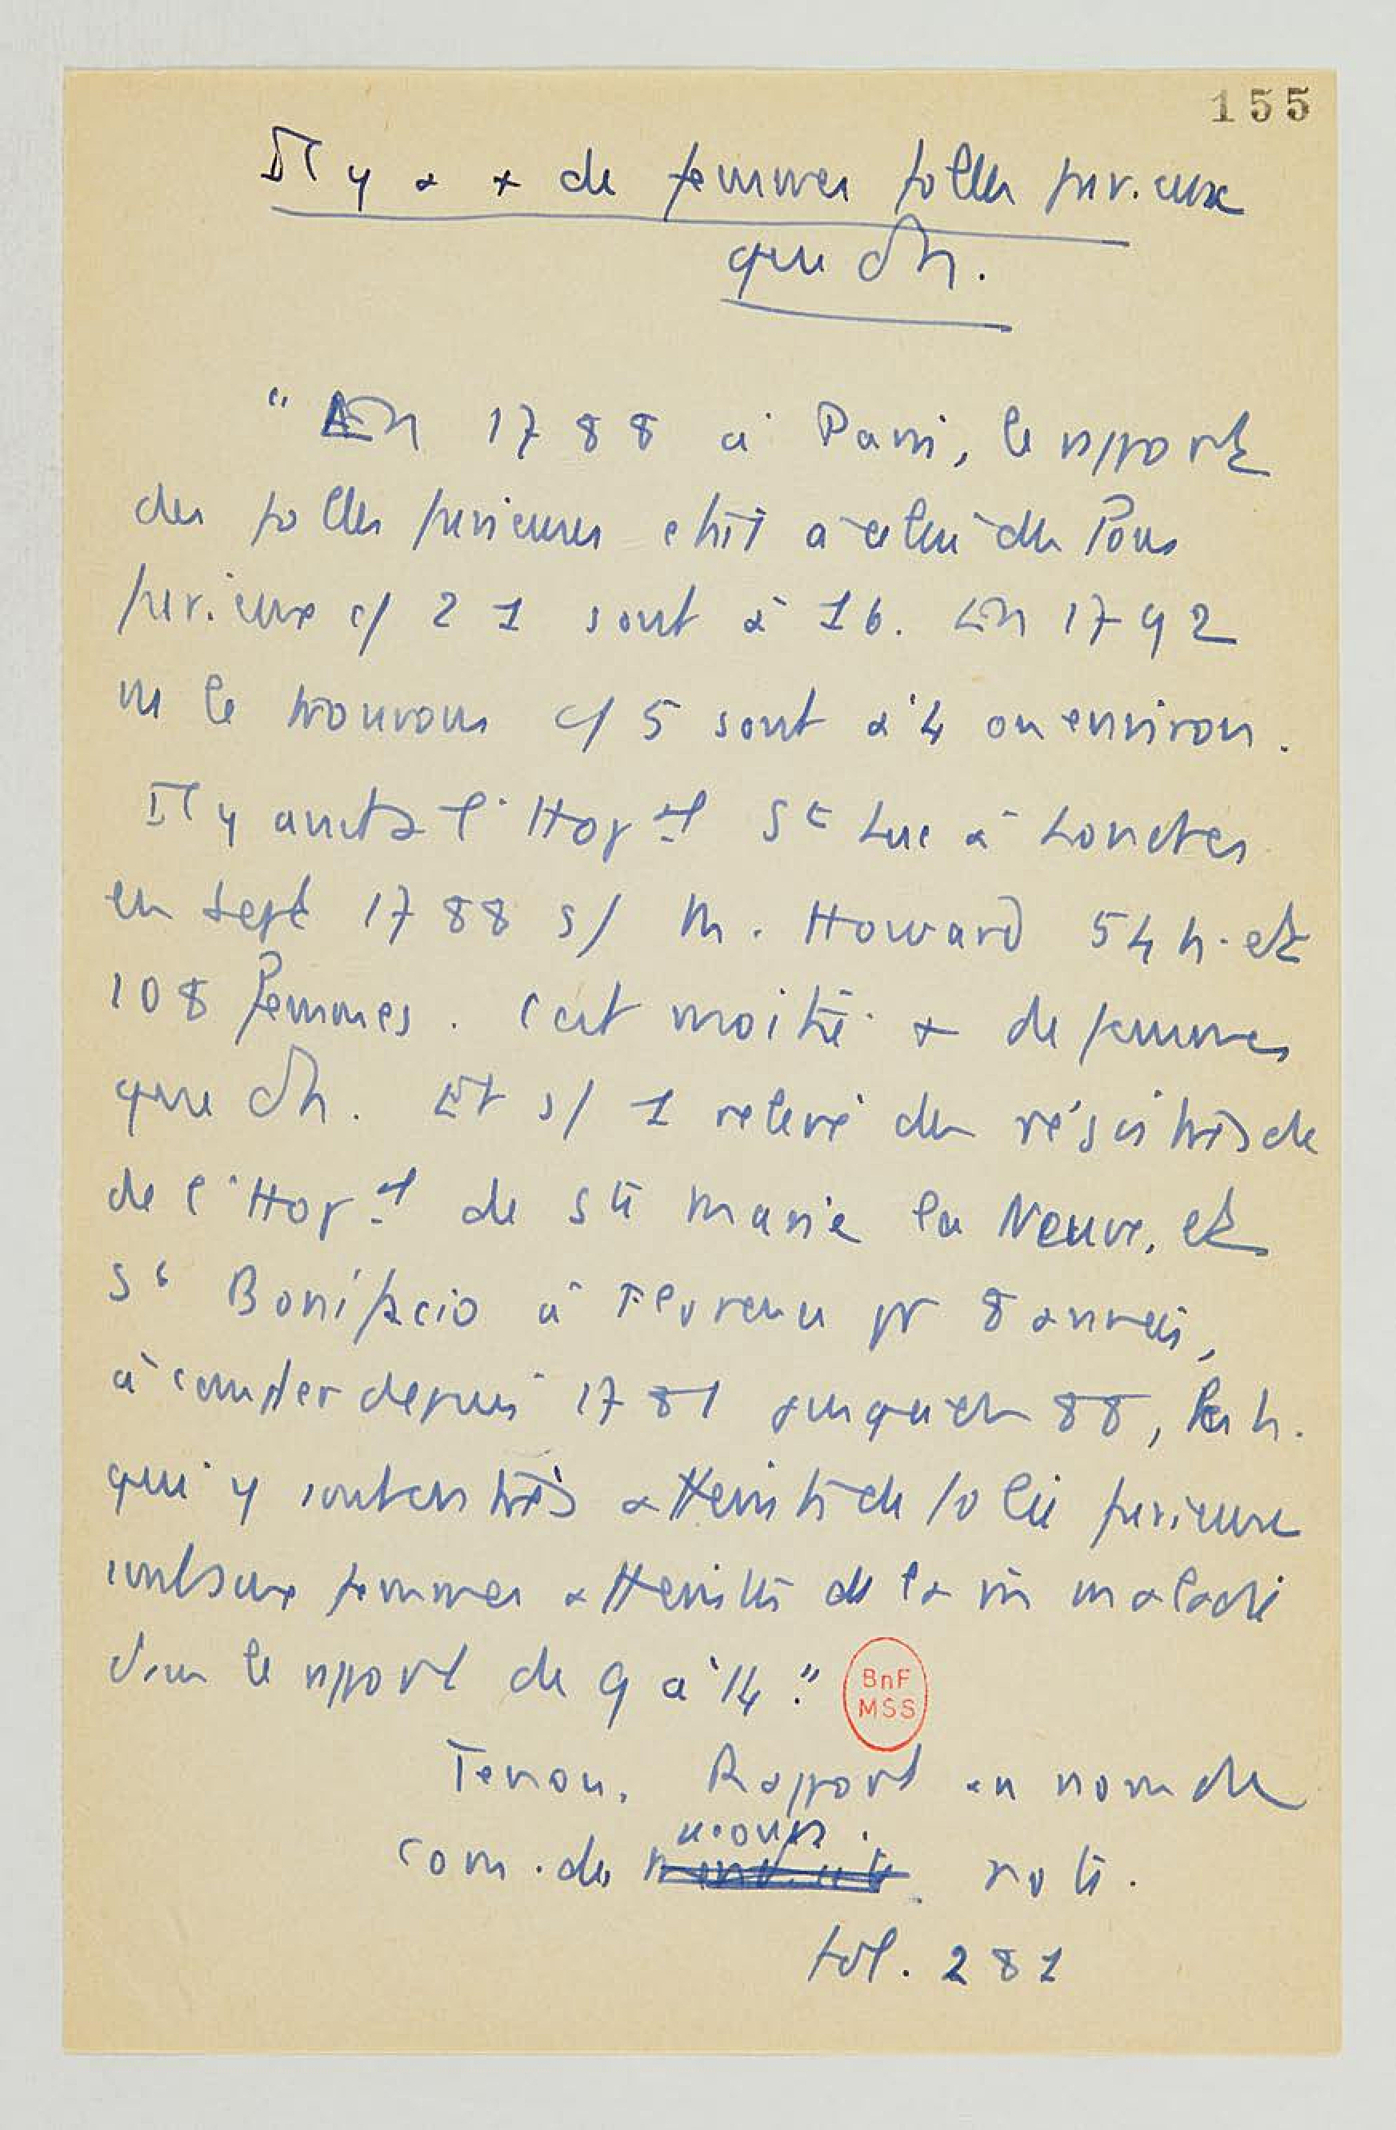 155
Il y a + de femmes folles furieux
que d'h.
" En 1788 à Paris, le rapport
des folles furieuses était à celui des fous
furieux c/ 21 sont à 16. En 1792
ns le trouvons c/ 5 sont à 4 ou environ.
Il y avait à l'Hop.al St Luc à Londres
en Sept 1788 s/ M. Howard 54 h. et
108 femmes. C'est moitié + de femmes
que d'h. Et s/ 1 relevé des régistres de
de l'Hop.al de Ste Marie la Neuve, et
St Bonifacio à Florence pr 8 années,
à compter depuis 1781 jusqu'en 88, les h.
qui y sont entrés atteints de folie furieuse
sont aux femmes atteintes de la m̂ maladie
dans le rapport de 9 à 14."
BnF
MSS
Tenon. Rapport au nom du
secours.
com. des
fol. 281